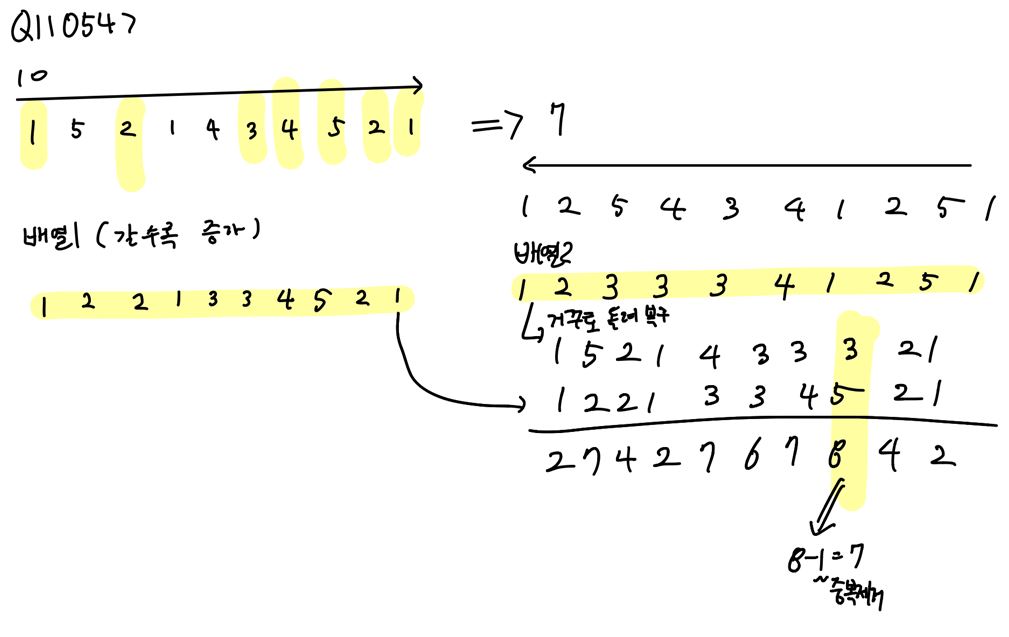 Q110547
10
1 5 2 1 4 3 4 5 2 1 => 7
1 2 5 4 3 4 1 2 5 1
배열1 (갈수록 증가)
배열2
1 2 2 1 3 3 4 5 2 1
1 2 3 3 3 4 1 2 5 1
거꾸로 돌려 복구
1 5 2 1 4 3 3 3 2 1
1 2 2 1 3 3 4 5 2 1
2 7 4 2 7 6 7 8 4 2
8-1=7
~중복제거